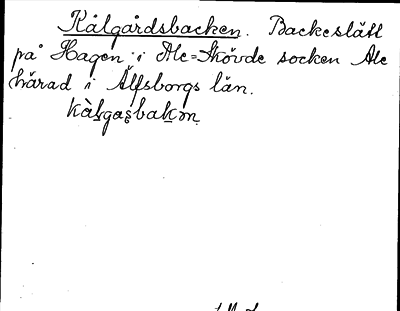 Kålgårdsbacken. Backeslätt
på Hagen i Ale=Skövde socken Ale
härad i Älfsborgs län.
kàlgasbakɷn